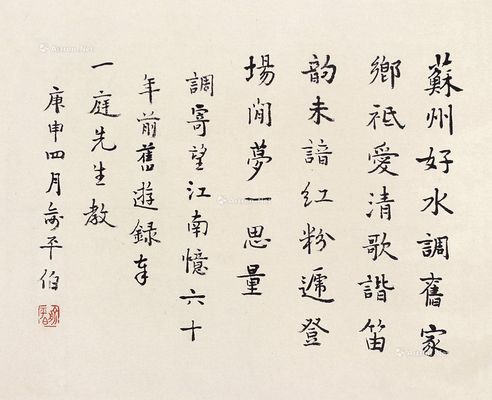 蘇州好水調舊家
鄉祗愛清歌諧笛
韵未諳紅粉遞登
場閒夢思量
調寄望江南憶六十
年前舊遊錄奉
一庭先生教
庚申四月俞平伯